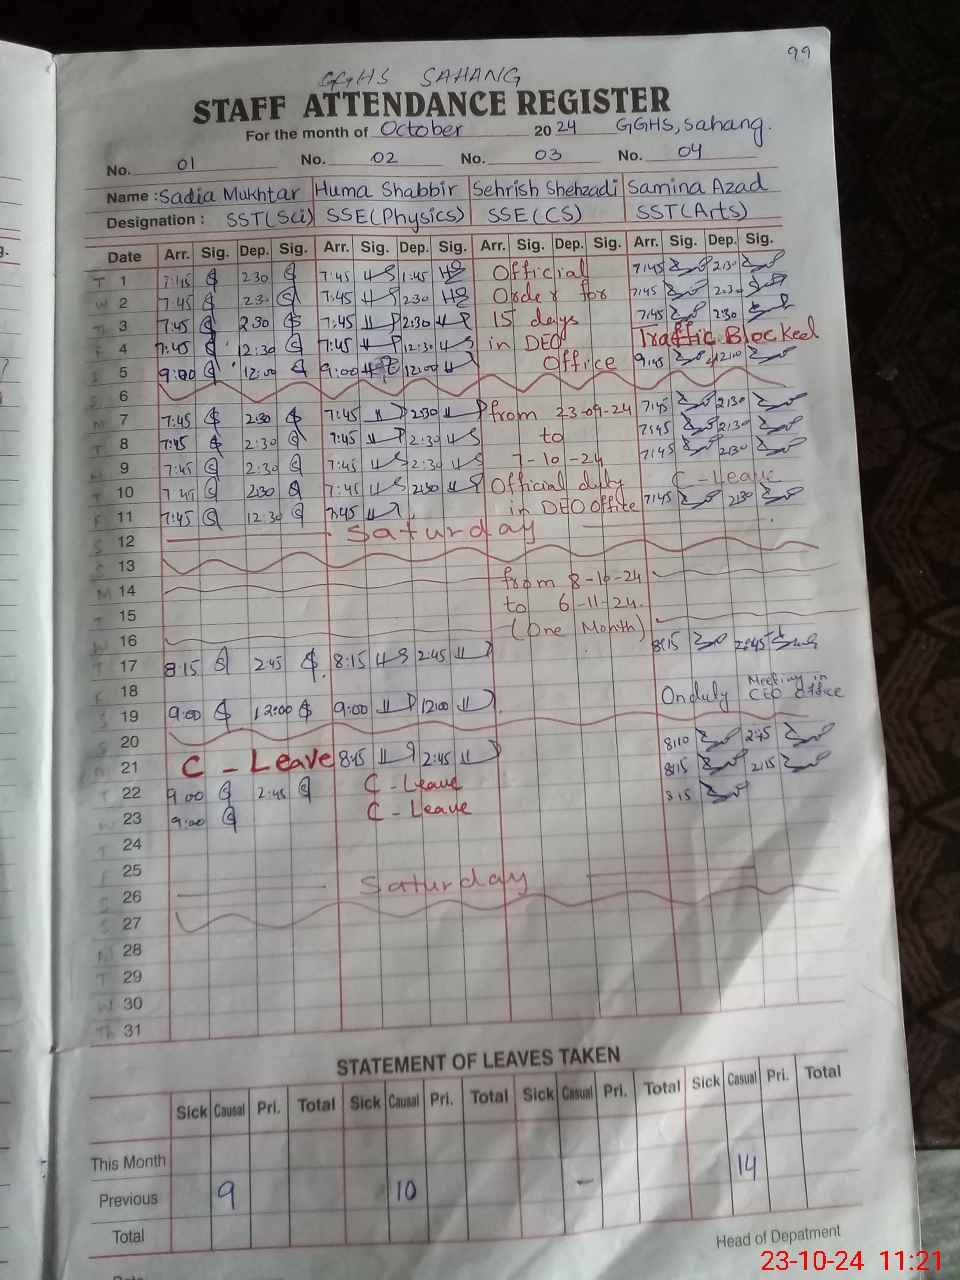 99
GGHS SAHANG
STAFF ATTENDANCE REGISTER
For the month of October 2024 GGHS, Sahang.
No. 01 No. 02 No. 03 No. 04
Name : Sadia Mukhtar Huma Shabbir Sehrish Shehzadi Samina Azad
Designation : SST(Sci) SSE(Physics) SSE(CS) SST(Arts)
Date Arr. Sig. Dep. Sig. Arr. Sig. Dep. Sig. Arr. Sig. Dep. Sig. Arr. Sig. Dep. Sig.
T 1 7:45 2:30 7:45 1:45 Official 7:45 2:30
W 2 7:45 2:30 7:45 2:30 Order for 7:45 2:30
Th 3 7:45 2:30 7:45 2:30 15 days 7:45 2:30
F 4 7:45 12:30 7:45 12:30 in DEO Traffic Blocked
S 5 9:00 12:00 9:00 12:00 Office 9:45 12:00
S 6
M 7 7:45 2:30 7:45 2:30 from 23-09-24 7:45 2:30
T 8 7:45 2:30 7:45 2:30 to 7:45 2:30
W 9 7:45 2:30 7:45 2:30 7-10-24 7:45 2:30
T 10 7:45 2:30 7:45 2:30 Official duty C-Leave
F 11 7:45 12:30 7:45 in DEO Office 7:45 2:30
S 12 Saturday
S 13
M 14 from 8-10-24
T 15 to 6-11-24.
W 16 (One Month)
T 17 8:15 2:45 8:15 2:45 8:15 2:45
18 On duty Meeting in CEO Office
S 19 9:00 12:00 9:00 12:00
S 20
21 C - Leave 8:15 2:45 8:10 2:45
T 22 9:00 2:45 C - Leave 8:15 2:15
W 23 9:00 C - Leave 8:15
T 24
F 25
S 26 Saturday
S 27
M 28
T 29
W 30
Th 31
STATEMENT OF LEAVES TAKEN
Sick Causal Pri. Total Sick Causal Pri. Total Sick Casual Pri. Total Sick Casual Pri. Total
This Month
Previous 9 10 - 14
Total
Head of Depatment
23-10-24 11:21